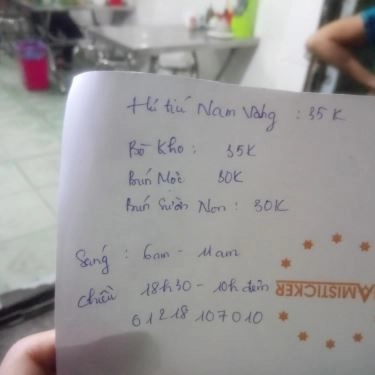 Hủ tiú Nam Vang : 35K
Bò Kho : 35K
Bún Mọc 30K
Bún Sườn Non : 30K
Sáng : 6am - 11am
Chiều 18h30 - 10h đêm
01218 107010
AMISTICKER